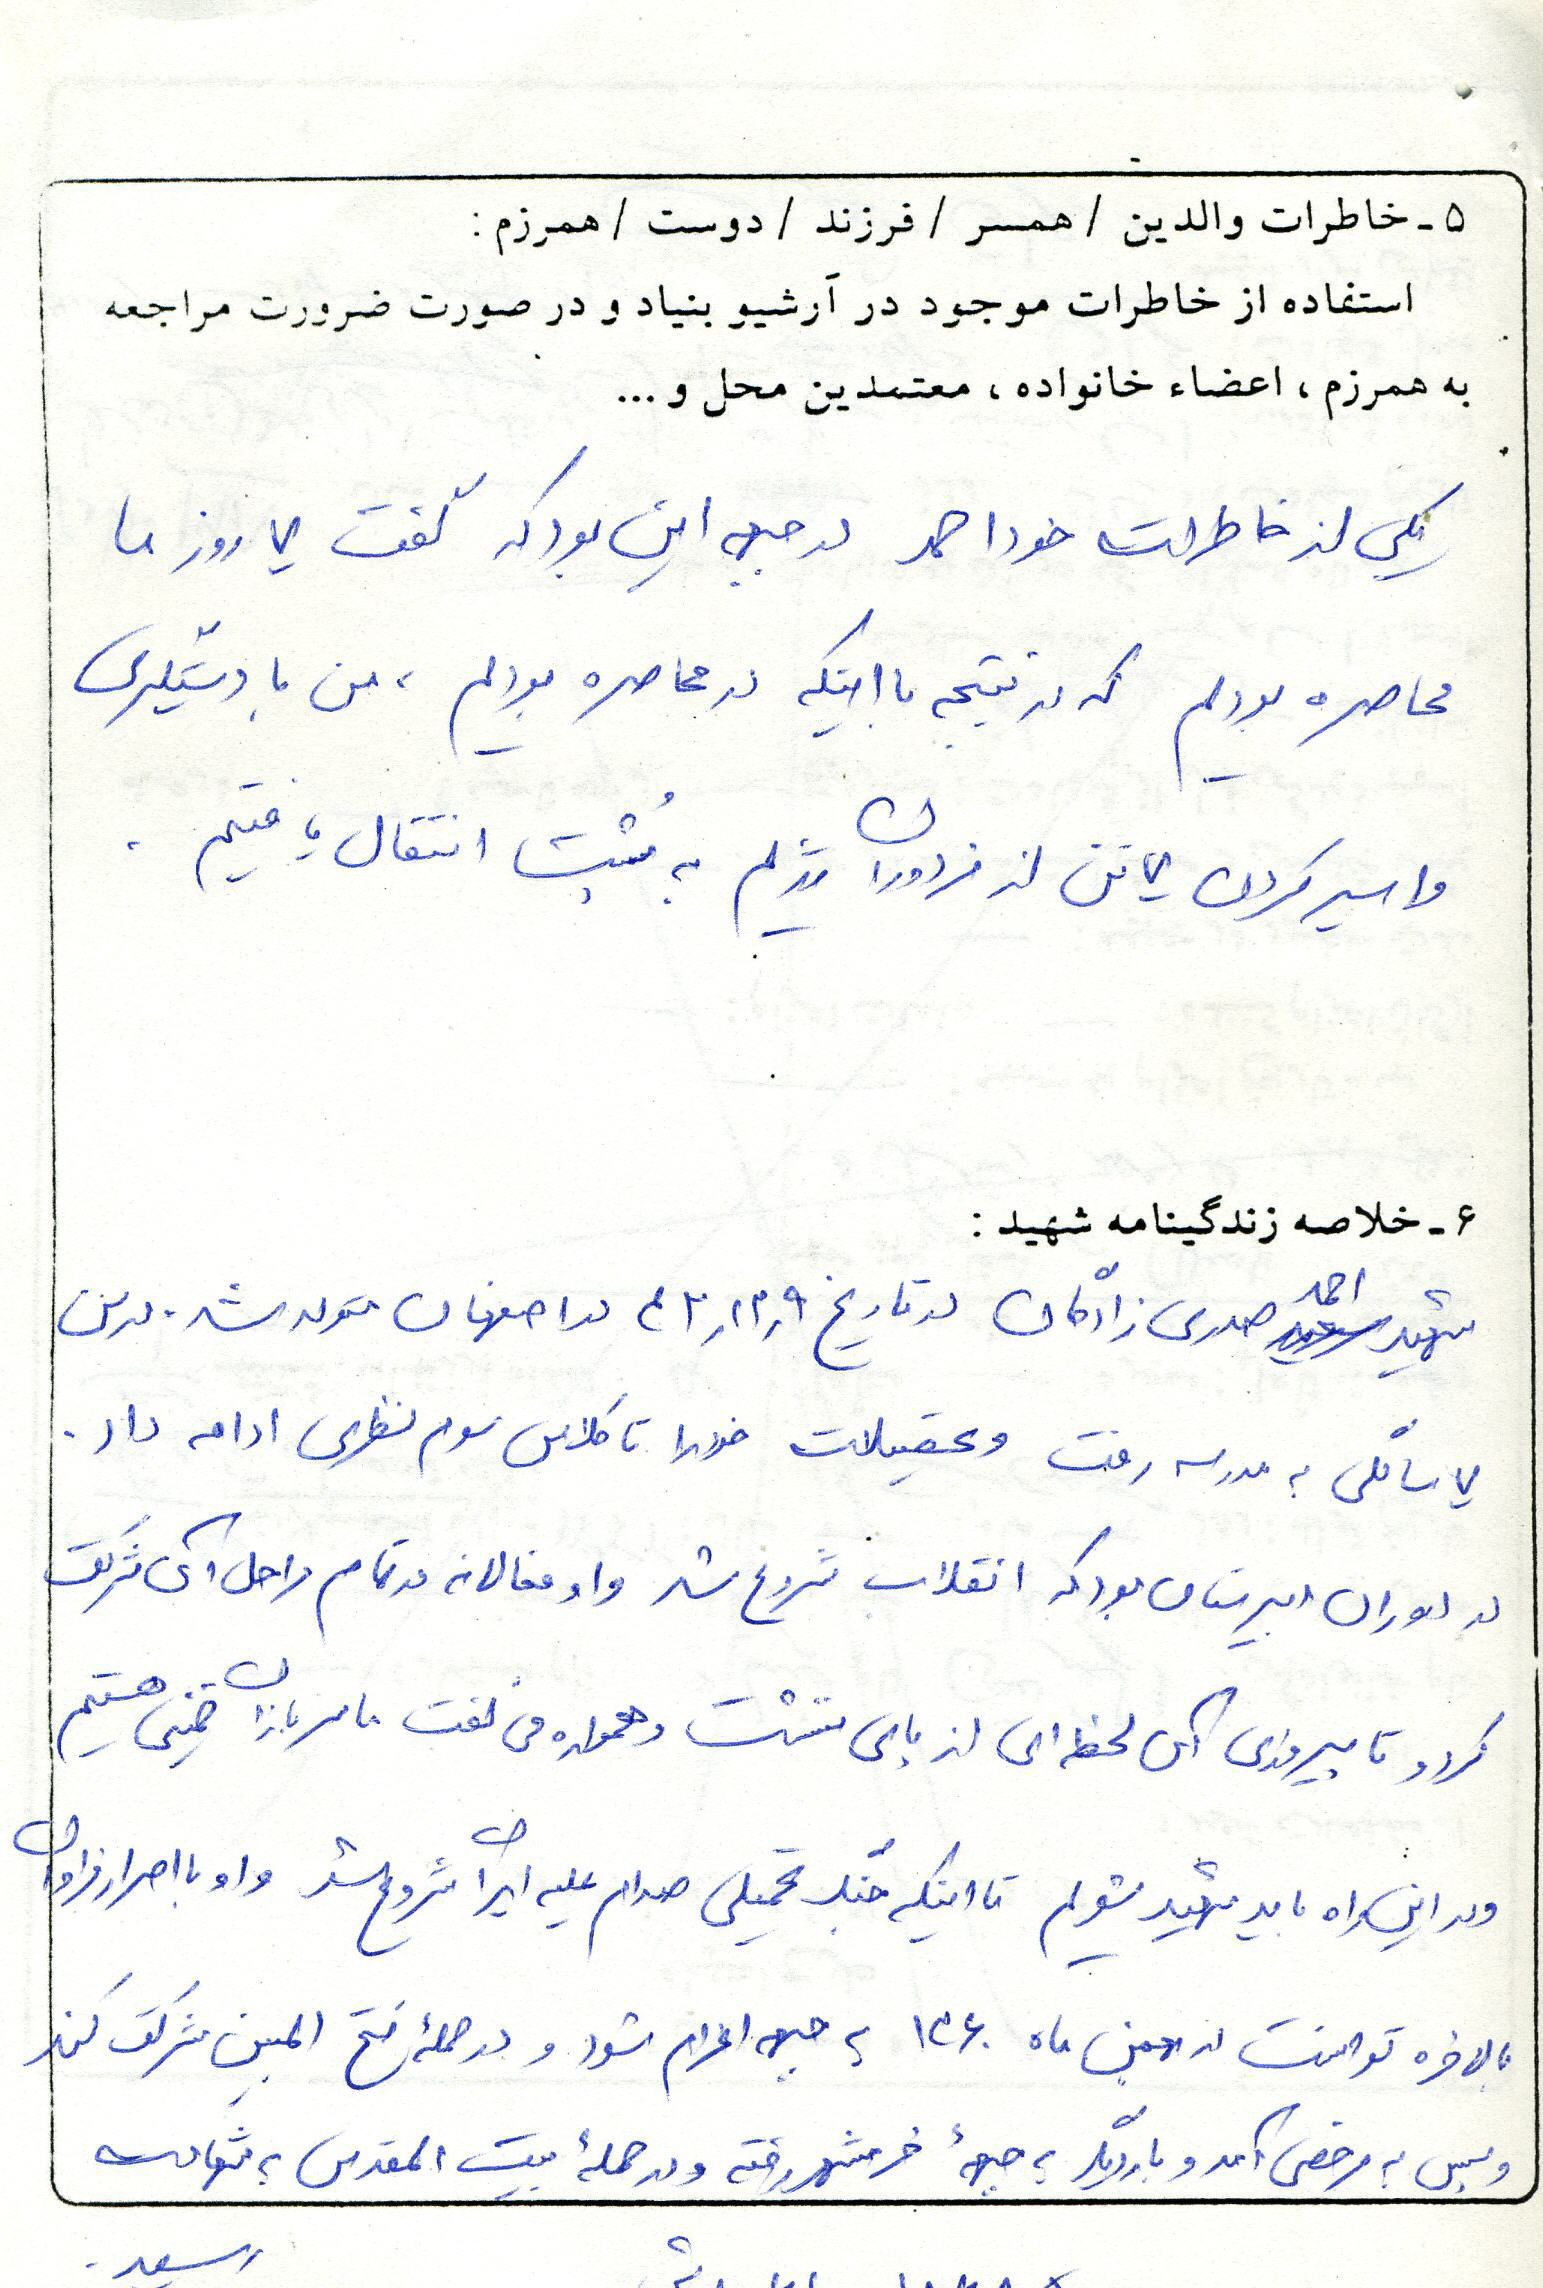 ۵ـ خاطرات والدین / همسر / فرزند / دوست / همرزم :
استفاده از خاطرات موجود در آرشیو بنیاد و در صورت ضرورت مراجعه
به همرزم ، اعضاء خانواده ، معتمدین محل و ...
یکی از خاطرات خود احمد در جبهه این بود که گفت ۷ روز ما
محاصره بودیم که در نتیجه با اینکه در محاصره بودیم ، من با دستگیری
و اسیر کردن ۷ تن از مزدوران به پشت انتقال یافتیم .
۶ـ خلاصه زندگینامه شهید :
شهید احمد صدری زادگان در تاریخ در اصفهان متولد شد . در سن
۷ سالگی به مدرسه رفت و تحصیلات خود را تا کلاس سوم نظری ادامه داد .
در دوران دبیرستان بود که انقلاب شروع شد و او فعالانه در تمام مراحل آن شرکت
کرد و تا پیروزی آن لحظه ای از پای ننشست و همواره می گفت ما سربازان خمینی هستیم
و در این راه باید شهید شویم تا اینکه جنگ تحمیلی صدام علیه ایران شروع شد و او با اصرار فراوان
بالاخره توانست در بهمن ماه ۱۳۶۰ به جبهه اعزام شود و در حملهٔ فتح المبین شرکت کند
و سپس به مرخصی آمد و بار دیگر به جبههٔ خرمشهر رفته و در حملهٔ بیت المقدس به شهادت
رسید .